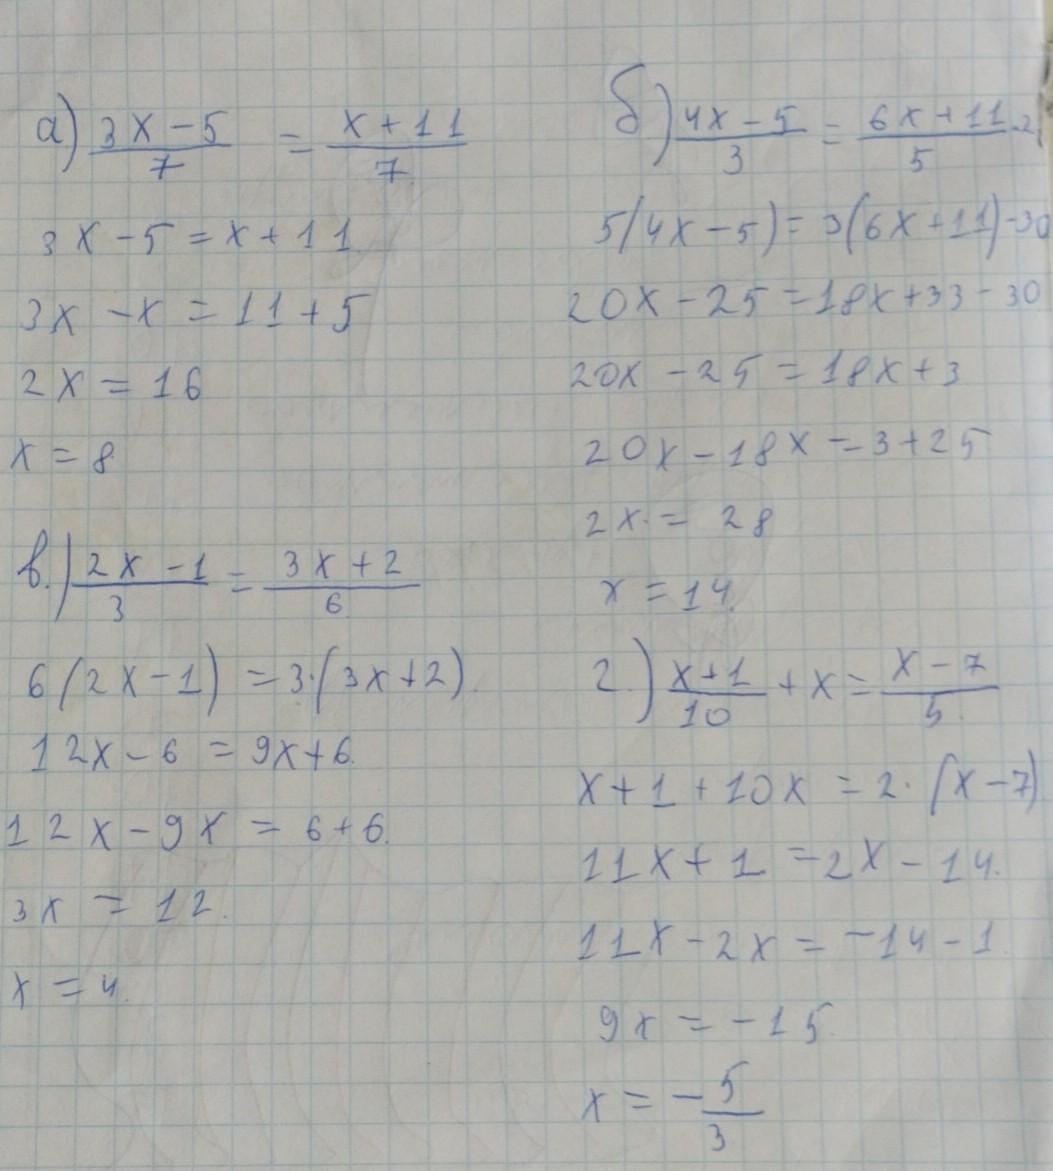 а) (3x-5)/7 = (x+11)/7
3x-5=x+11
3x-x=11+5
2x=16
x=8
б) (4x-5)/3 = (6x+11)/5-2
5(4x-5)=3(6x+11)-30
20x-25=18x+33-30
20x-25=18x+3
20x-18x=3+25
2x=28
x=14.
в.) (2x-1)/3 = (3x+2)/6
6(2x-1)=3·(3x+2).
12x-6=9x+6.
12x-9x=6+6.
3x=12.
x=4.
г.) (x+1)/10+x=(x-7)/5.
x+1+10x=2·(x-7)
11x+1=2x-14.
11x-2x=-14-1.
9x=-15.
x=-5/3